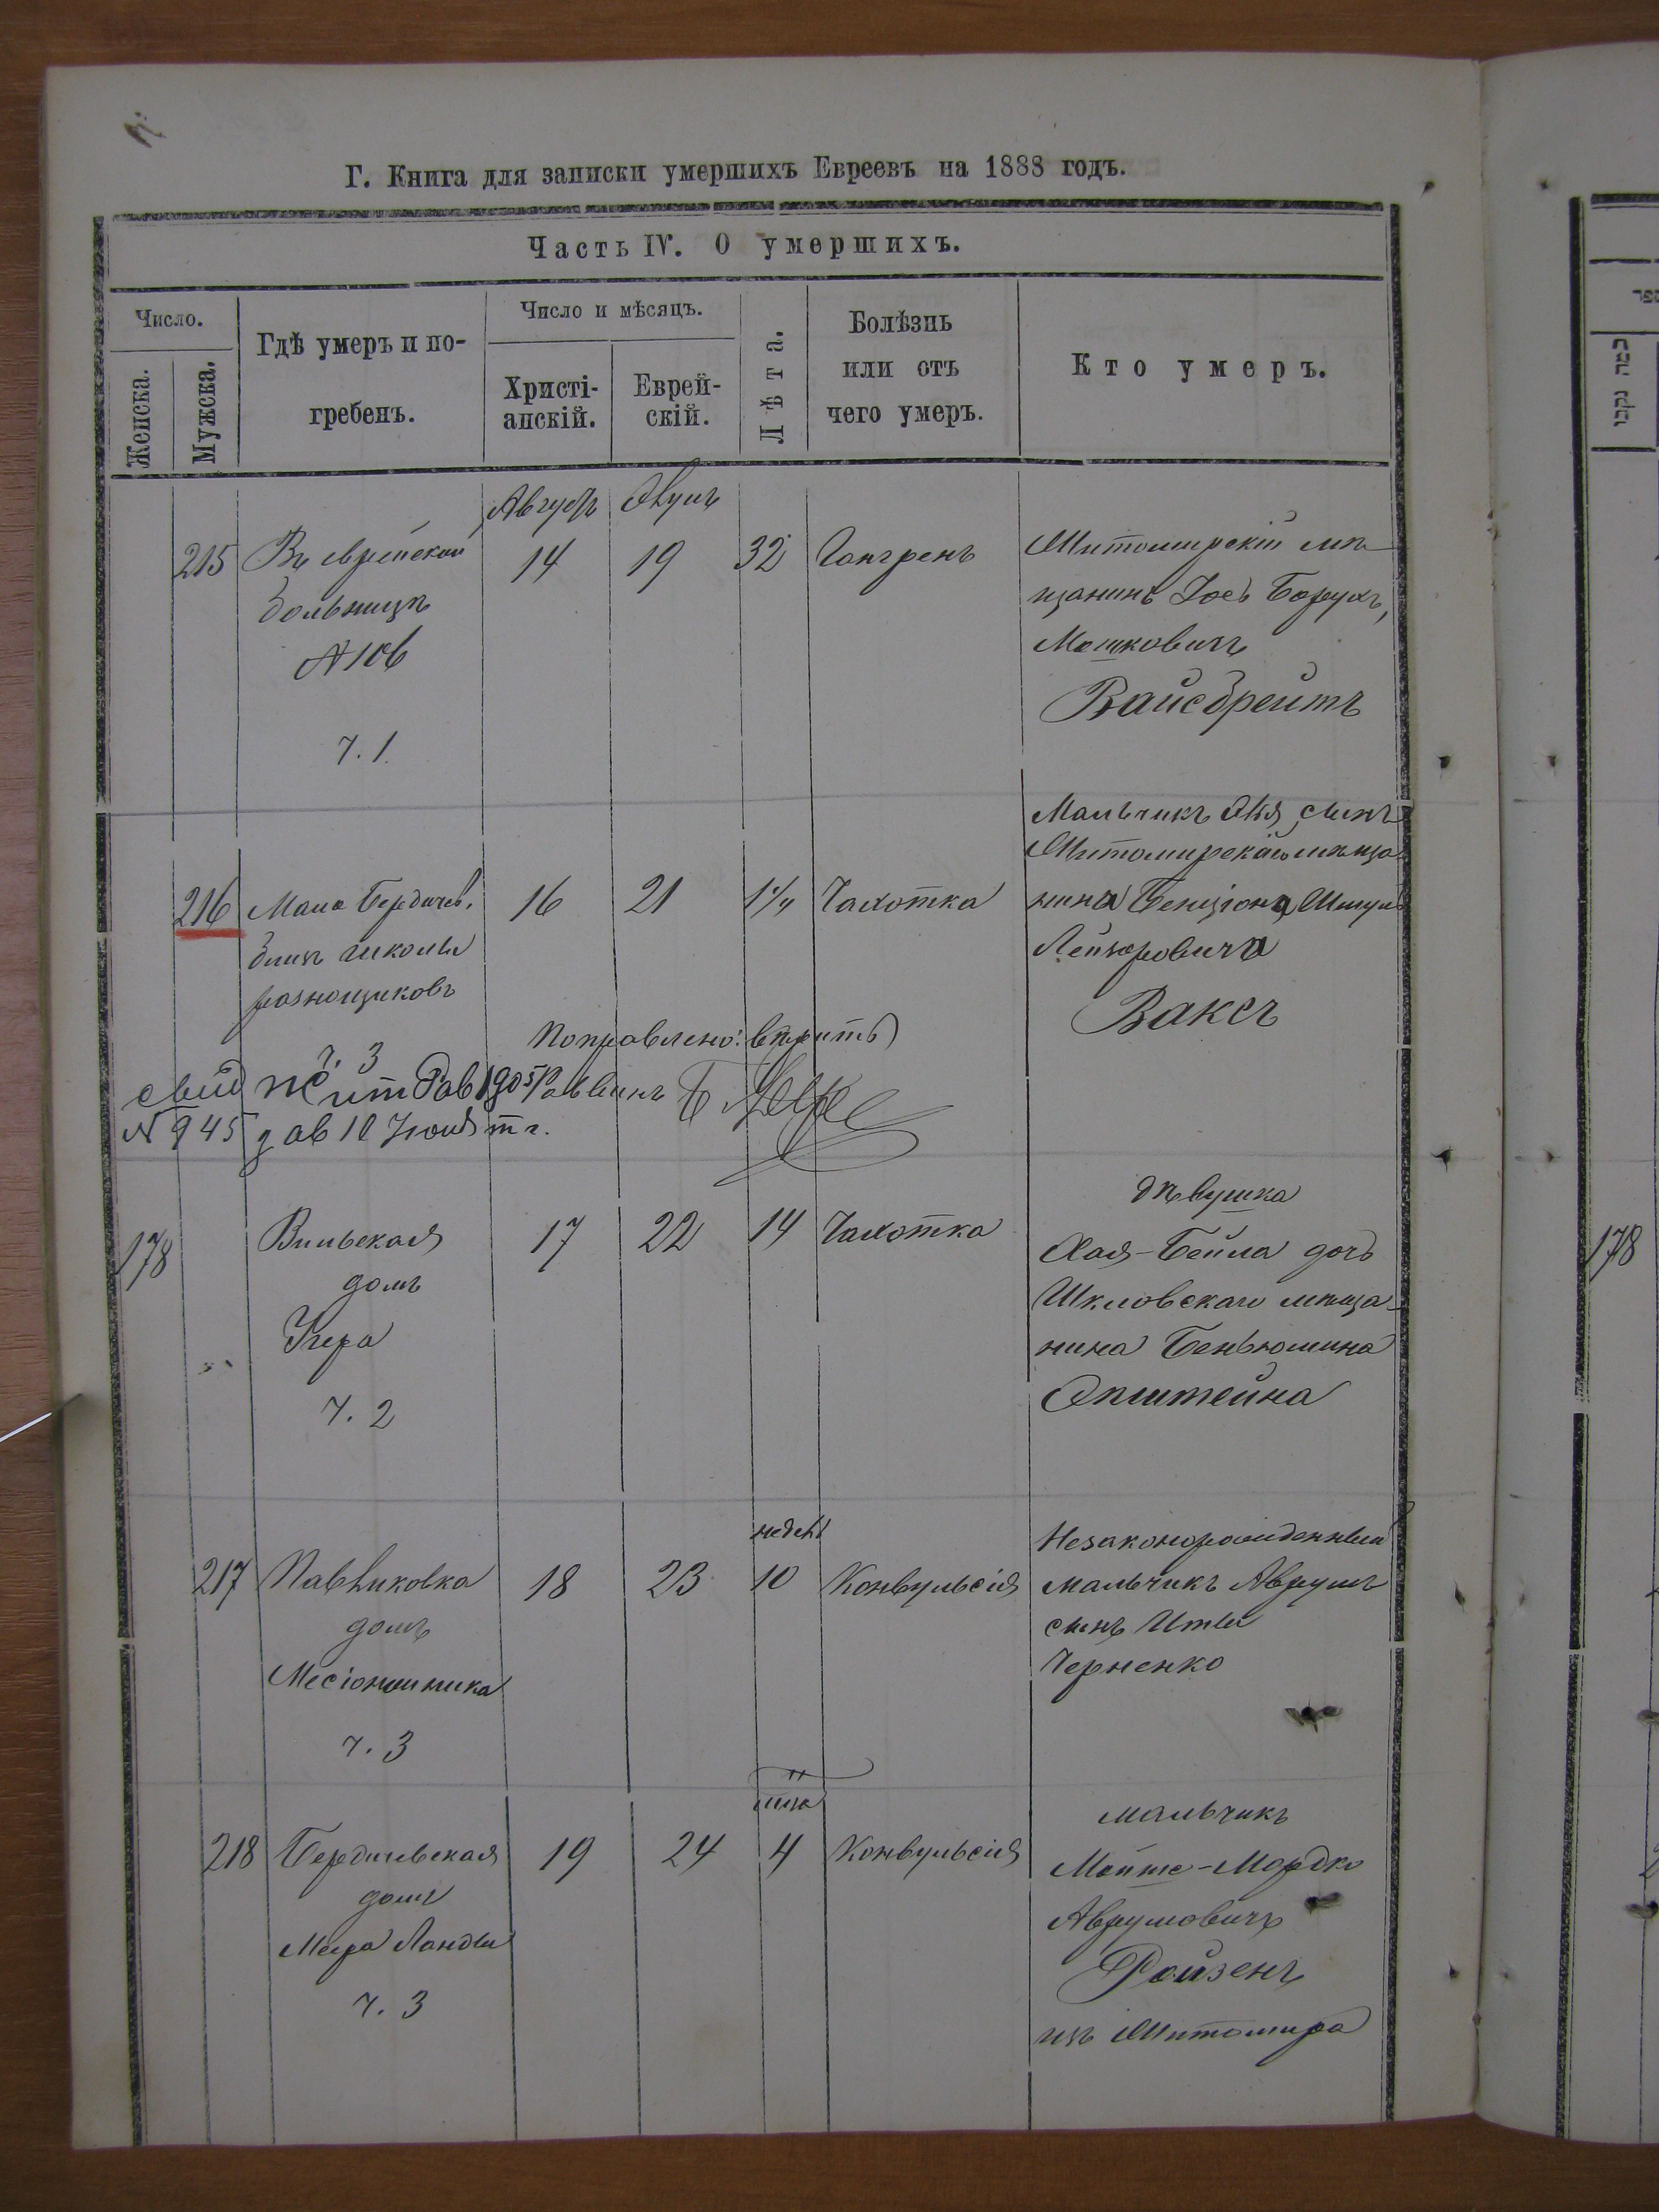 Г. Книга для записки умершихъ Евреевъ на 1888 годъ.
Часть IV. О умершихъ.
Число.
Женска.
Мужска.
Гдѣ умеръ и по-
гребенъ.
Число и мѣсяцъ.
Христі-
анскій.
Еврей-
скій.
Лѣта.
Болѣзнь
или отъ
чего умеръ.
Кто умеръ.
Августъ
215
Въ еврейской
больницѣ
№ 106
ч. 1
14
19
32
Гангрена
Житомирскій мѣ-
щанинъ Іось Борухъ
Мошковичъ
Вайсбрейтъ
216
Мало Бердичев.
близъ школы
разнощиковъ
ч. 3
16
21
Чахотка
Мальчикъ сынъ
Житомирскаго мѣща
нина Бенціона Шмуль
Лейзоровича
Ваксъ
Поправлено: вѣрить
Раввинъ Б
свид Жит Рав 1905
№ 945 10 Іюня т г.
178
Вильская
домъ
ч. 2
17
22
14
Чахотка
дѣвушка
Хая-Бейла дочь
Шкловскаго мѣща-
нина Беньюмина
Эпштейна
217
Павликовка
домъ
ч. 3
18
23
недель
10
Конвульсія
Незаконорожденный
мальчикъ Аврумъ
сынъ Итты
Черненко
218
Бердичевская
домъ
Меера Ланды
ч. 3
19
24
4
Конвульсія
мальчикъ
Мойше-Мордко
Аврумовичъ
Ройзенъ
изъ Житомира
178